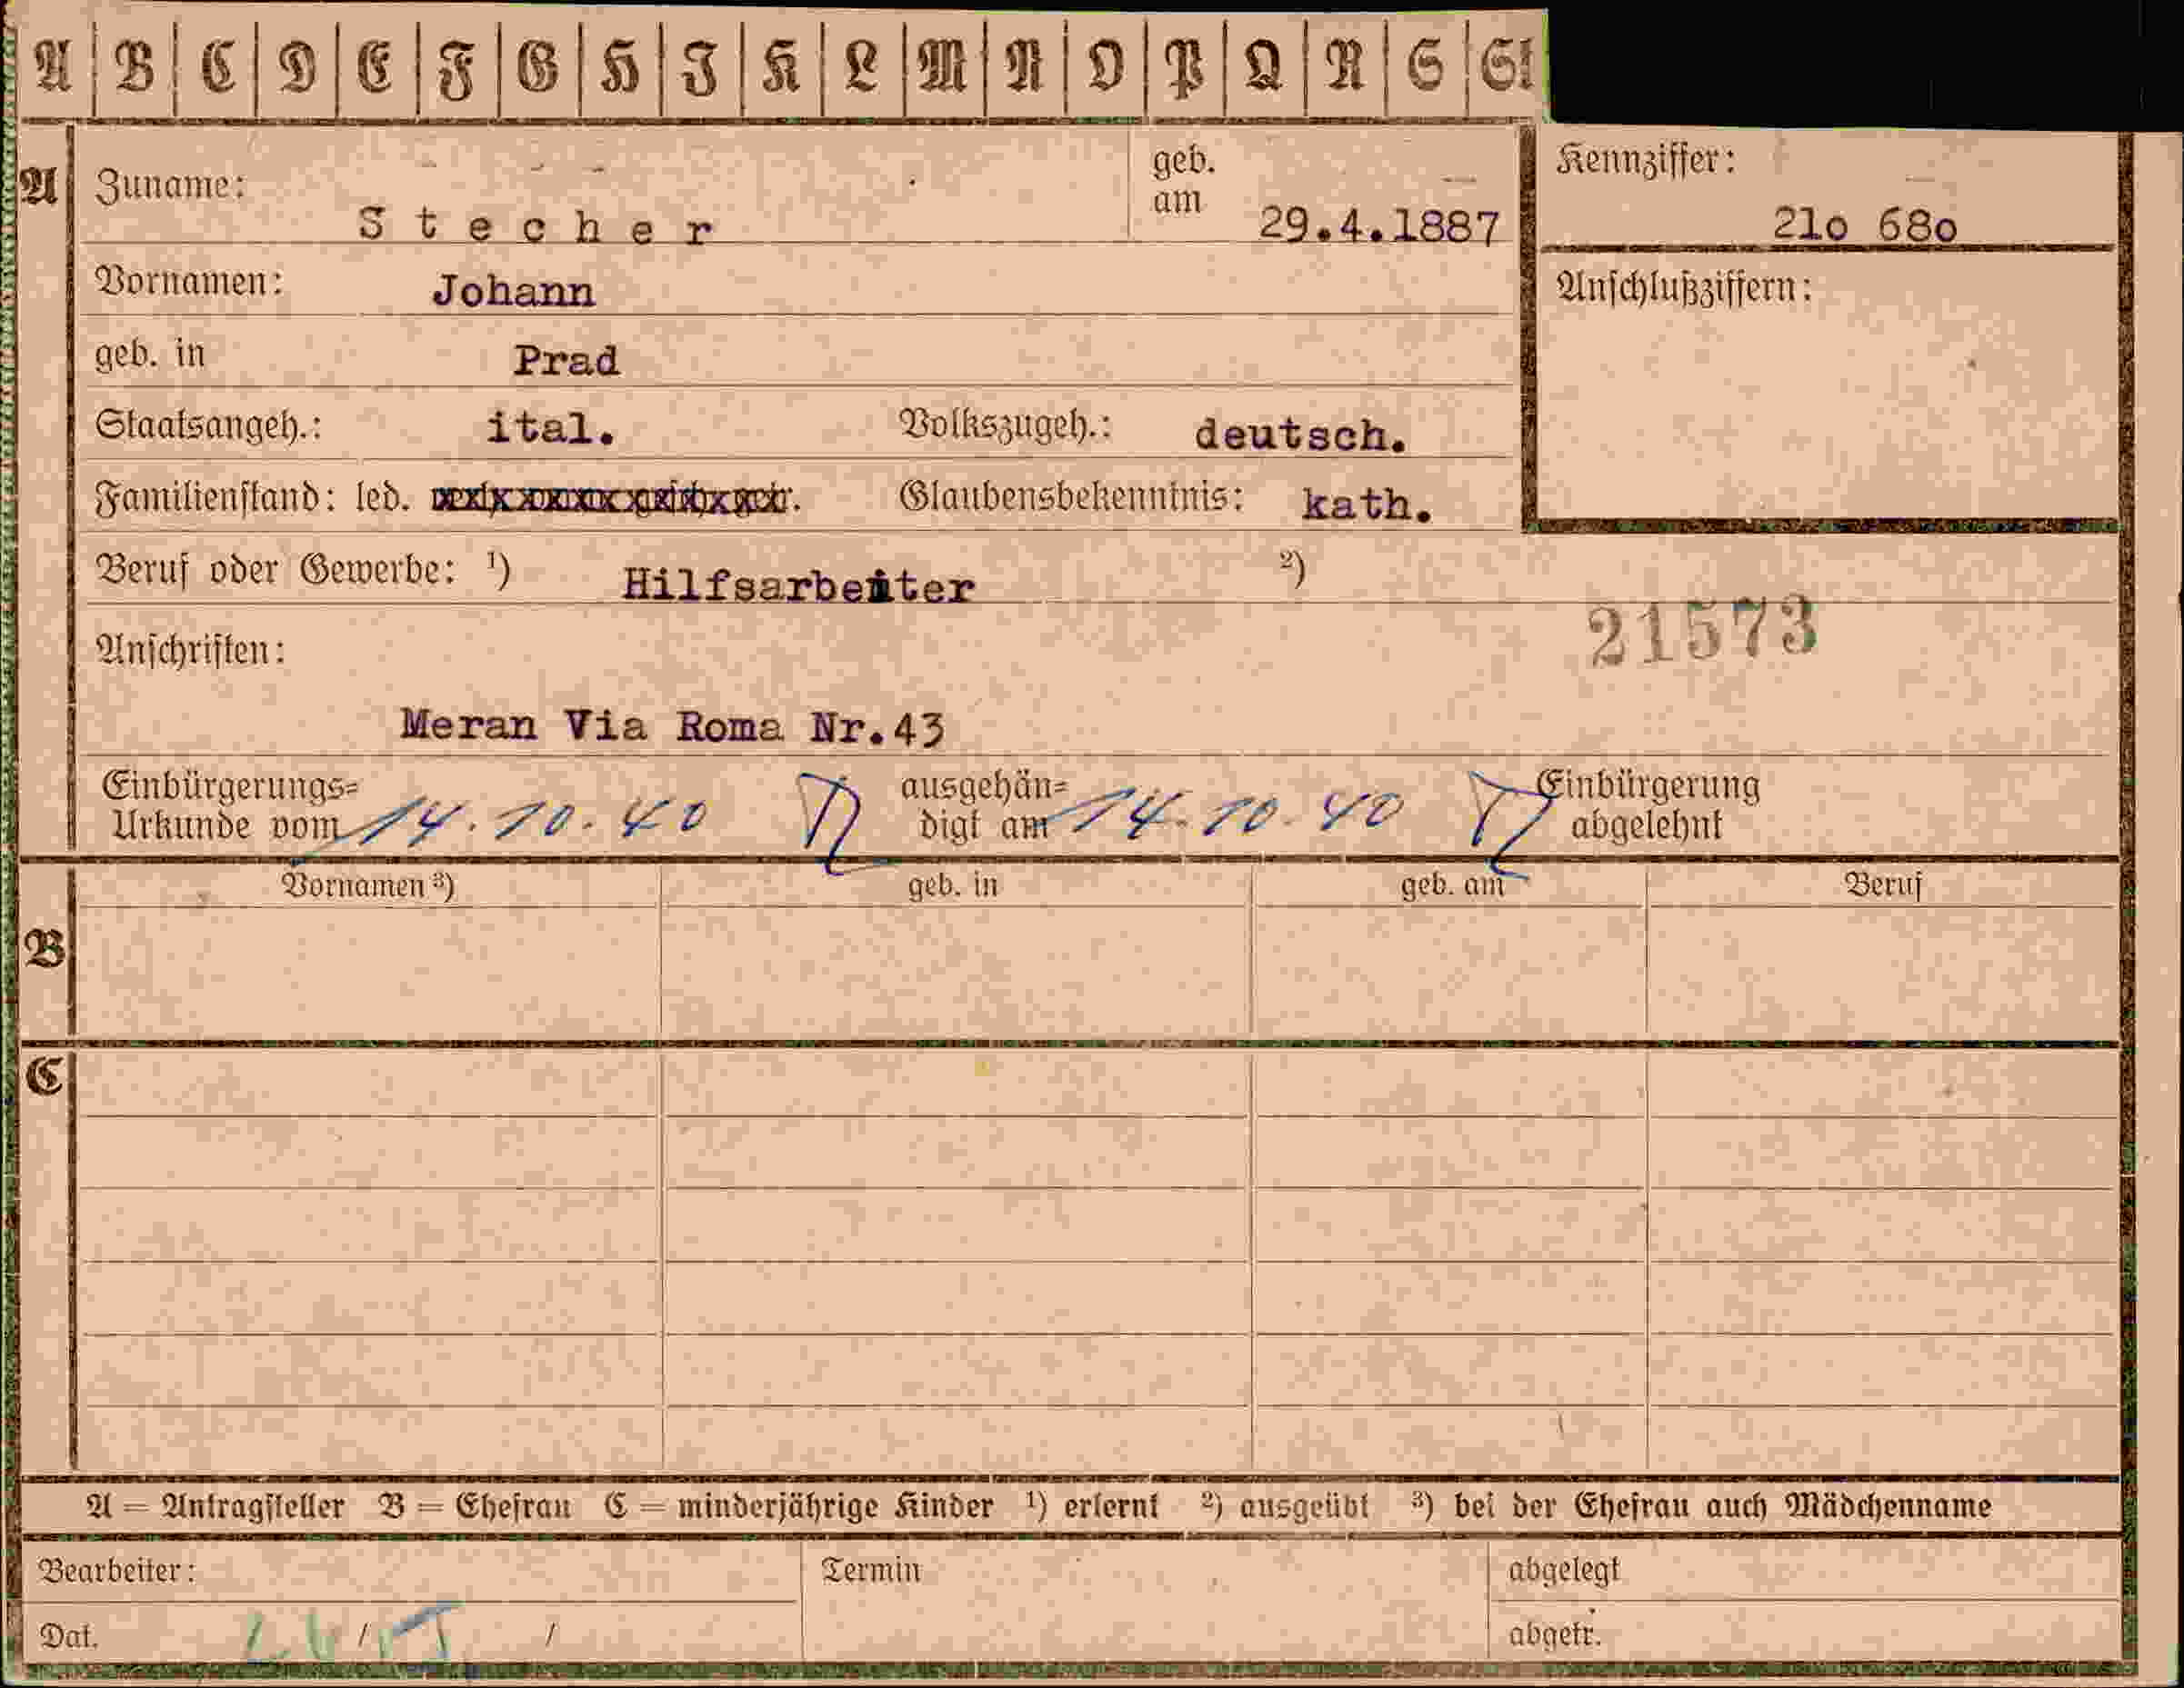 A B C D E F G H J K L M N O P Q R S St
A Zuname: Stecher geb. am 29.4.1887 Kennziffer: 21o 68o
Vornamen: Johann Anschlußziffern:
geb. in Prad
Staatsangeh.: ital. Volkszugeh.: deutsch.
Familienstand: led. Glaubensbekenntnis: kath.
Beruf oder Gewerbe: ¹) Hilfsarbeiter ²)
21573
Anschriften:
Meran Via Roma Nr.43
Einbürgerungs= ausgehän= Einbürgerung
Urkunde vom 14.10.40 digt am 14.10.40 abgelehnt
Vornamen ³) geb. in geb. am Beruf
B
C
A = Antragsteller B = Ehefrau C = minderjährige Kinder ¹) erlernt ²) ausgeübt ³) bei der Ehefrau auch Mädchenname
Bearbeiter: Termin abgelegt
Dat. / / abgetr.